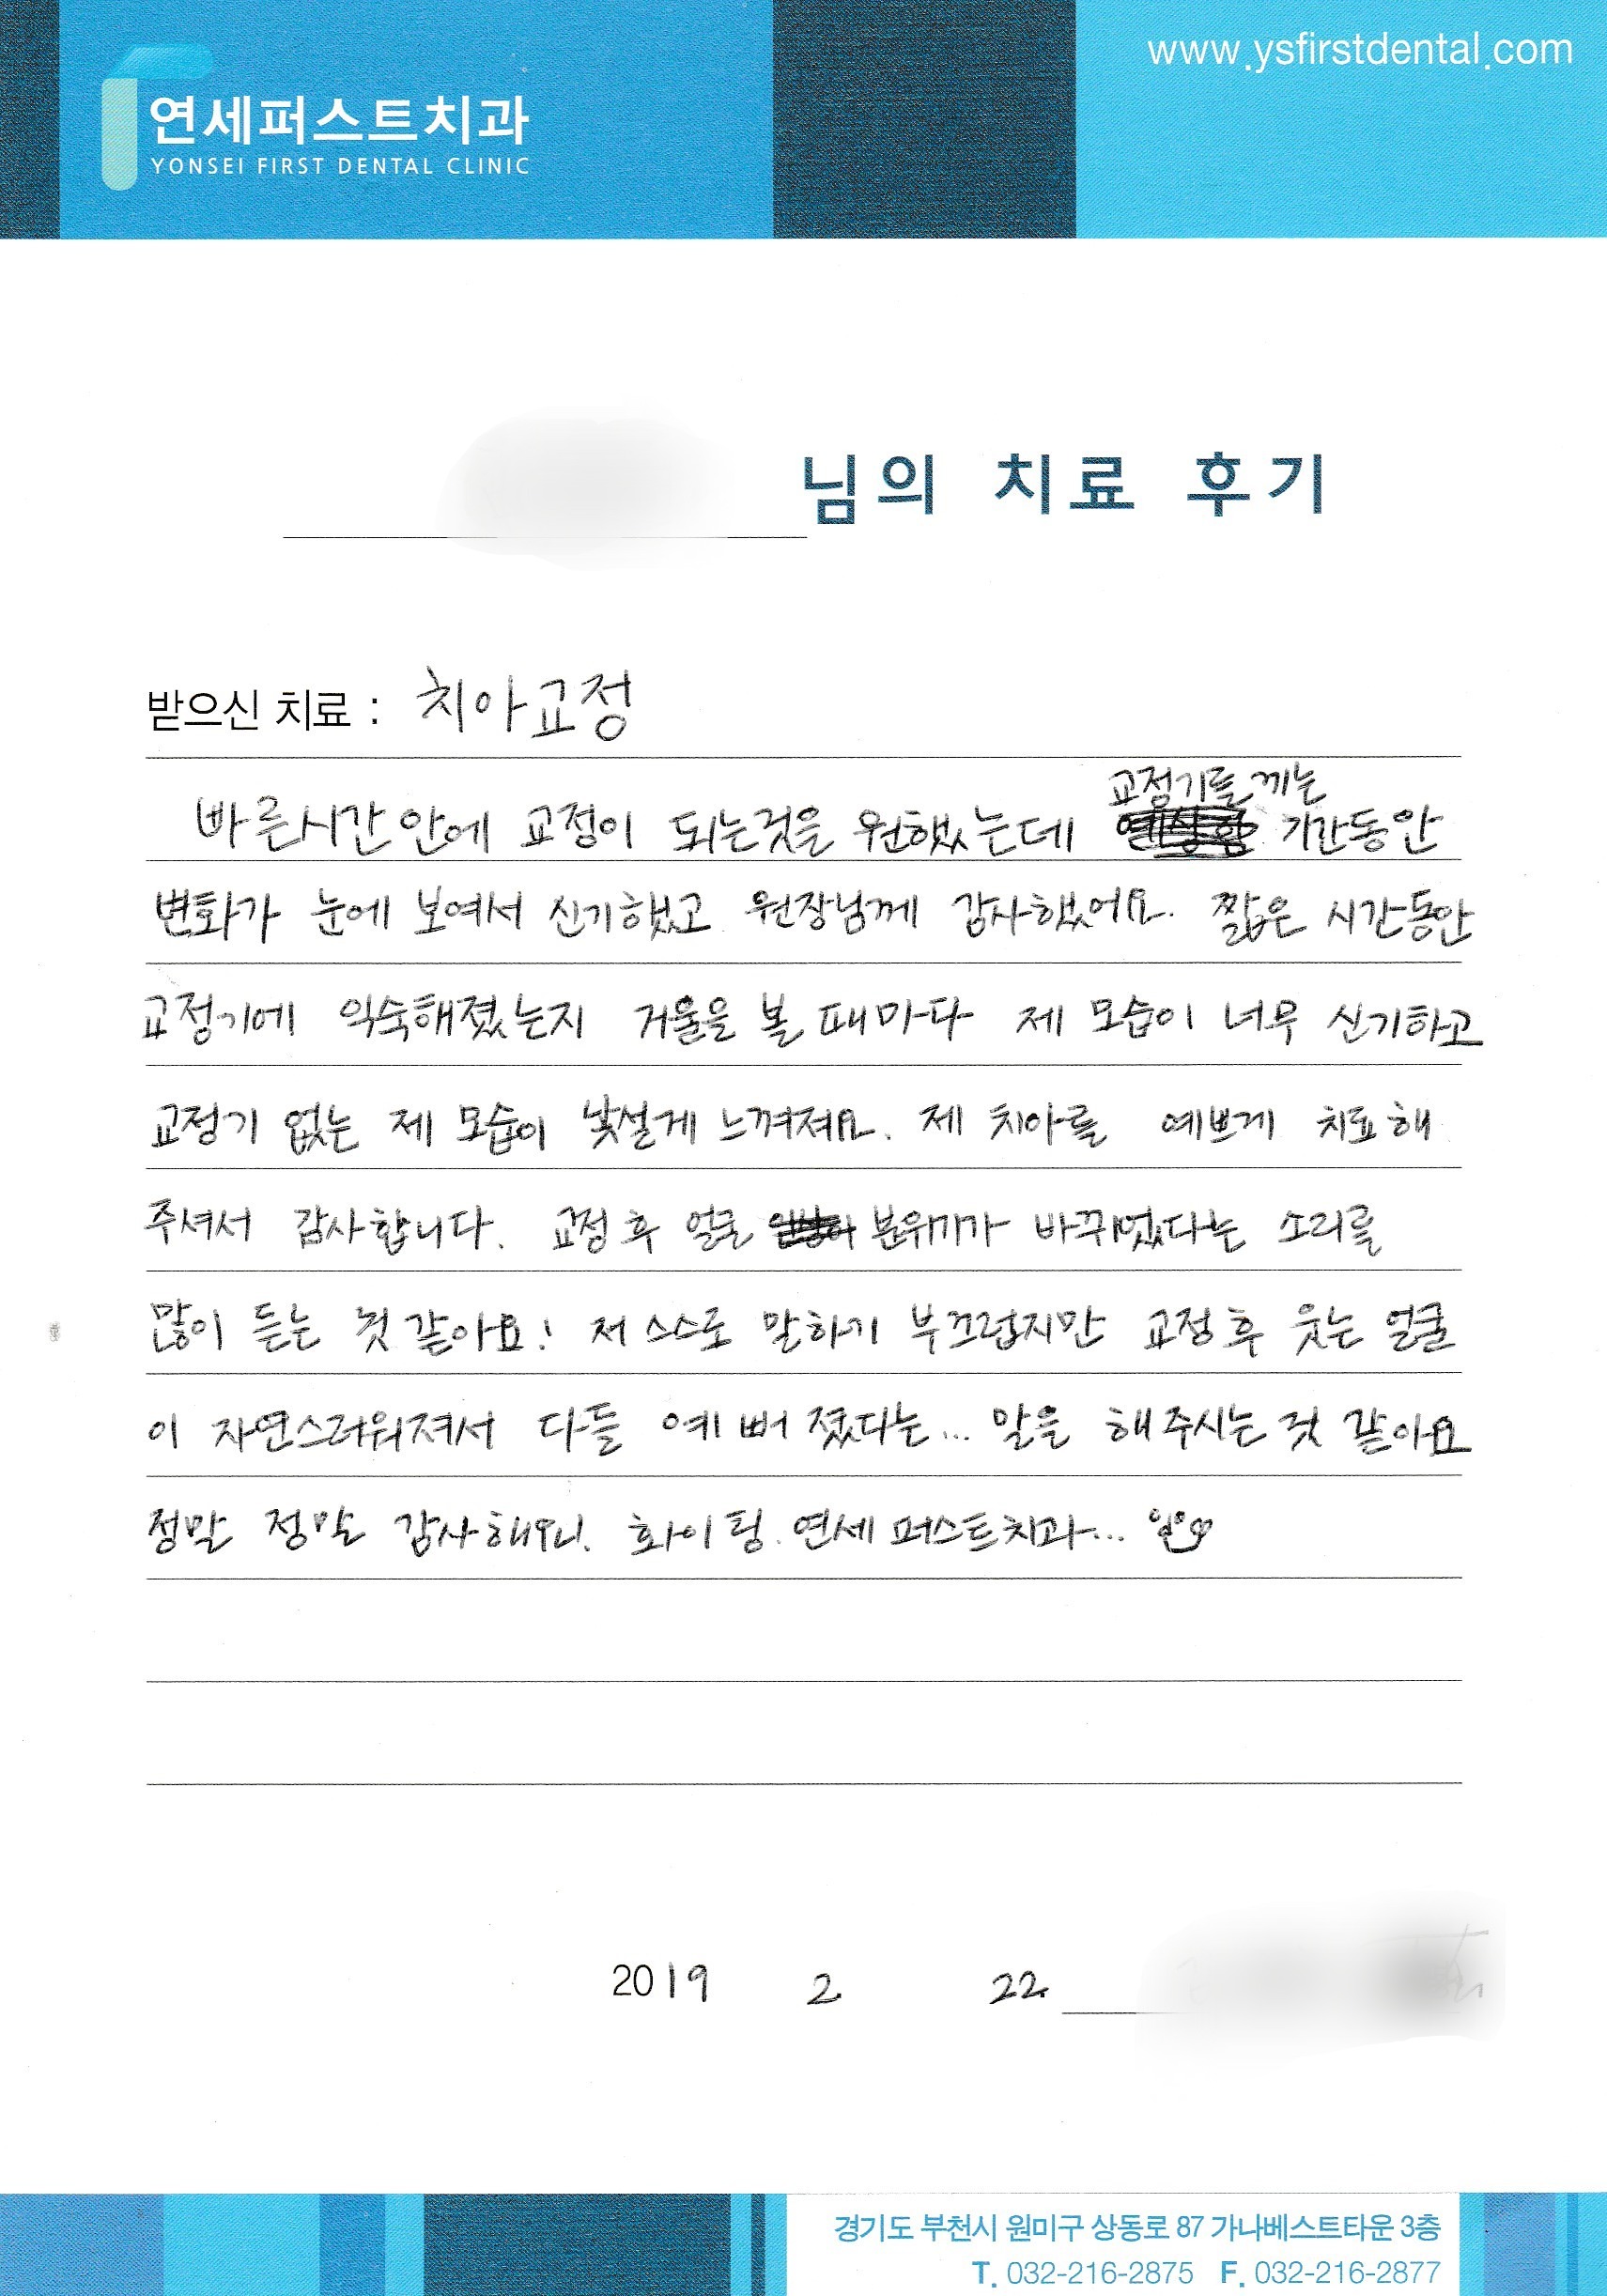 www.ysfirstdental.com
연세퍼스트치과
YONSEI FIRST DENTAL CLINIC
님의 치료 후기
받으신 치료 : 치아교정
교정기를 끼는
바른시간 안에 교정이 되는것을 원했는데 기간동안
변화가 눈에 보여서 신기했고 원장님께 감사했어요. 짧은 시간동안
교정기에 익숙해졌는지 거울을 볼 때마다 제 모습이 너무 신기하고
교정기 없는 제 모습이 낯설게 느껴져요. 제 치아를 예쁘게 치료해
주셔서 감사합니다. 교정 후 얼굴 분위기가 바뀌었다는 소리를
많이 듣는 것 같아요! 저 스스로 말하기 부끄럽지만 교정 후 웃는 얼굴
이 자연스러워져서 다들 예뻐졌다는... 말을 해주시는 것 같아요
정말 정말 감사해요! 화이팅. 연세퍼스트치과...
2019 2 22
경기도 부천시 원미구 상동로 87 가나베스트타운 3층
T. 032-216-2875 F. 032-216-2877